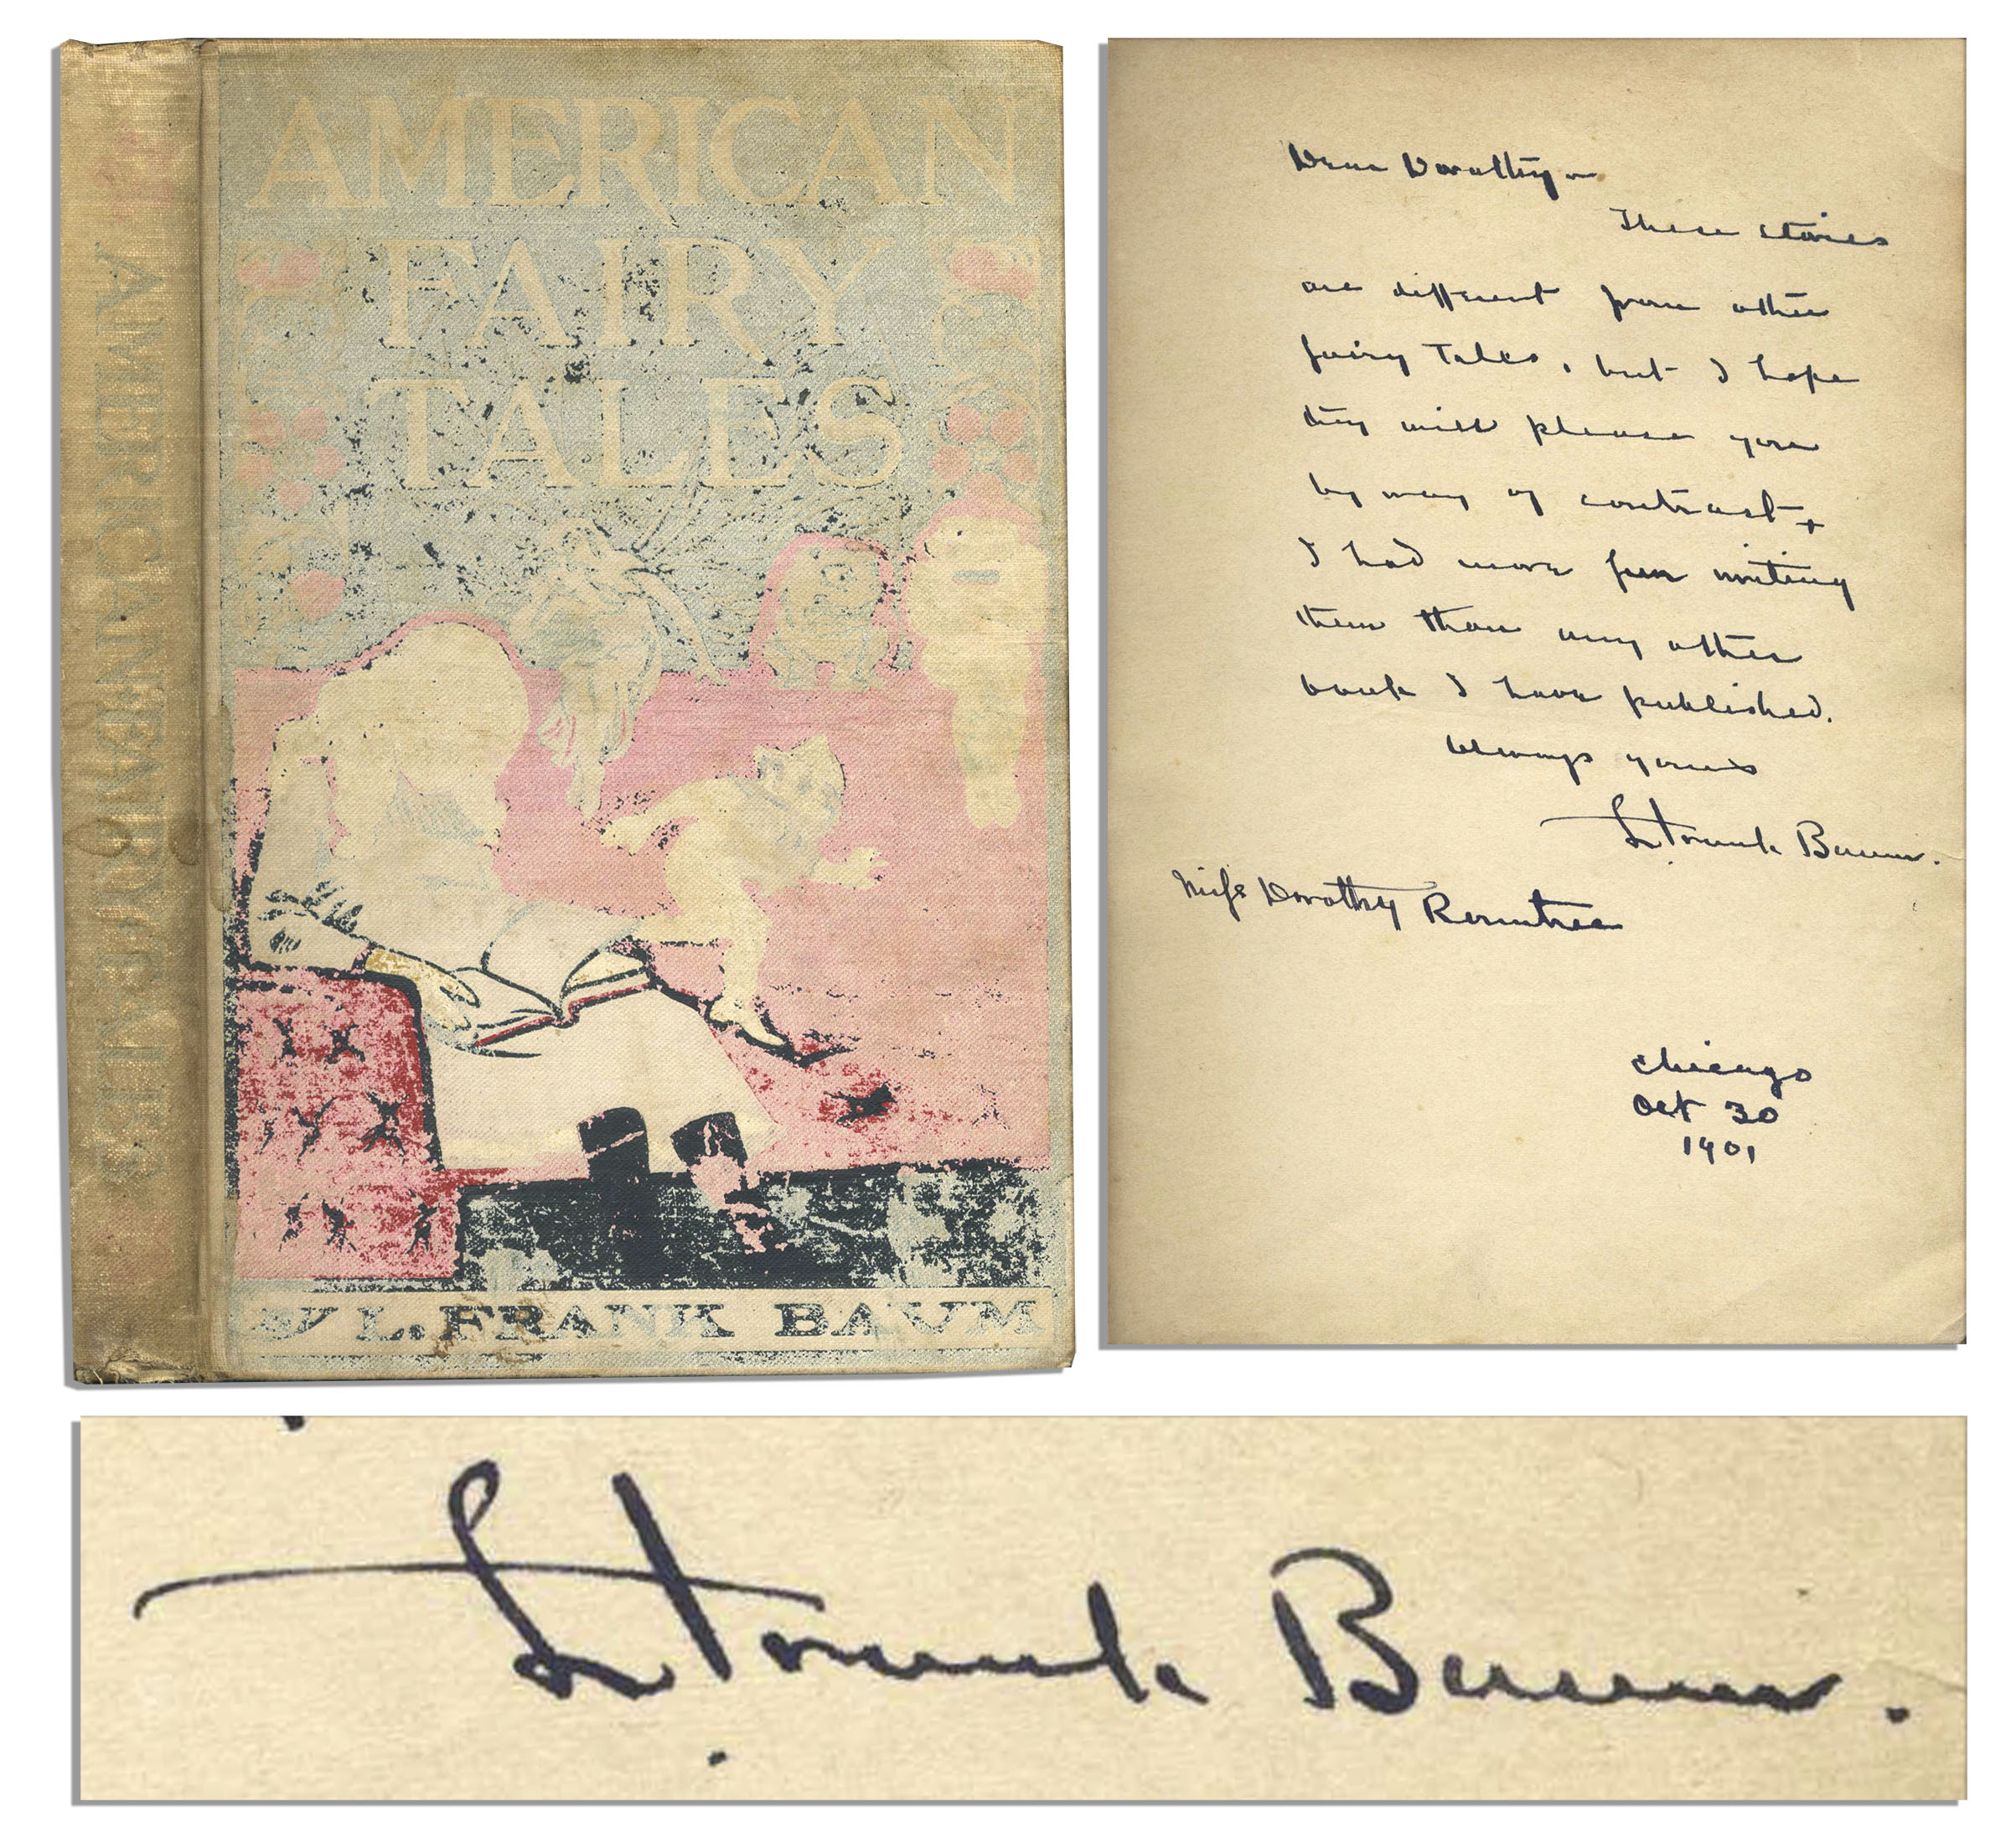 AMERICAN
FAIRY
TALES
BY L. FRANK BAUM
AMERICAN FAIRY TALES
Dear Dorothy —
These stories
are different from other
fairy tales, but I hope
they will please you
by way of contrast +
I had more fun writing
them than any other
book I have published.
Always yours
L Frank Baum.
Miss Dorothy Rountree
Chicago
Oct 30
1901
L Frank Baum.